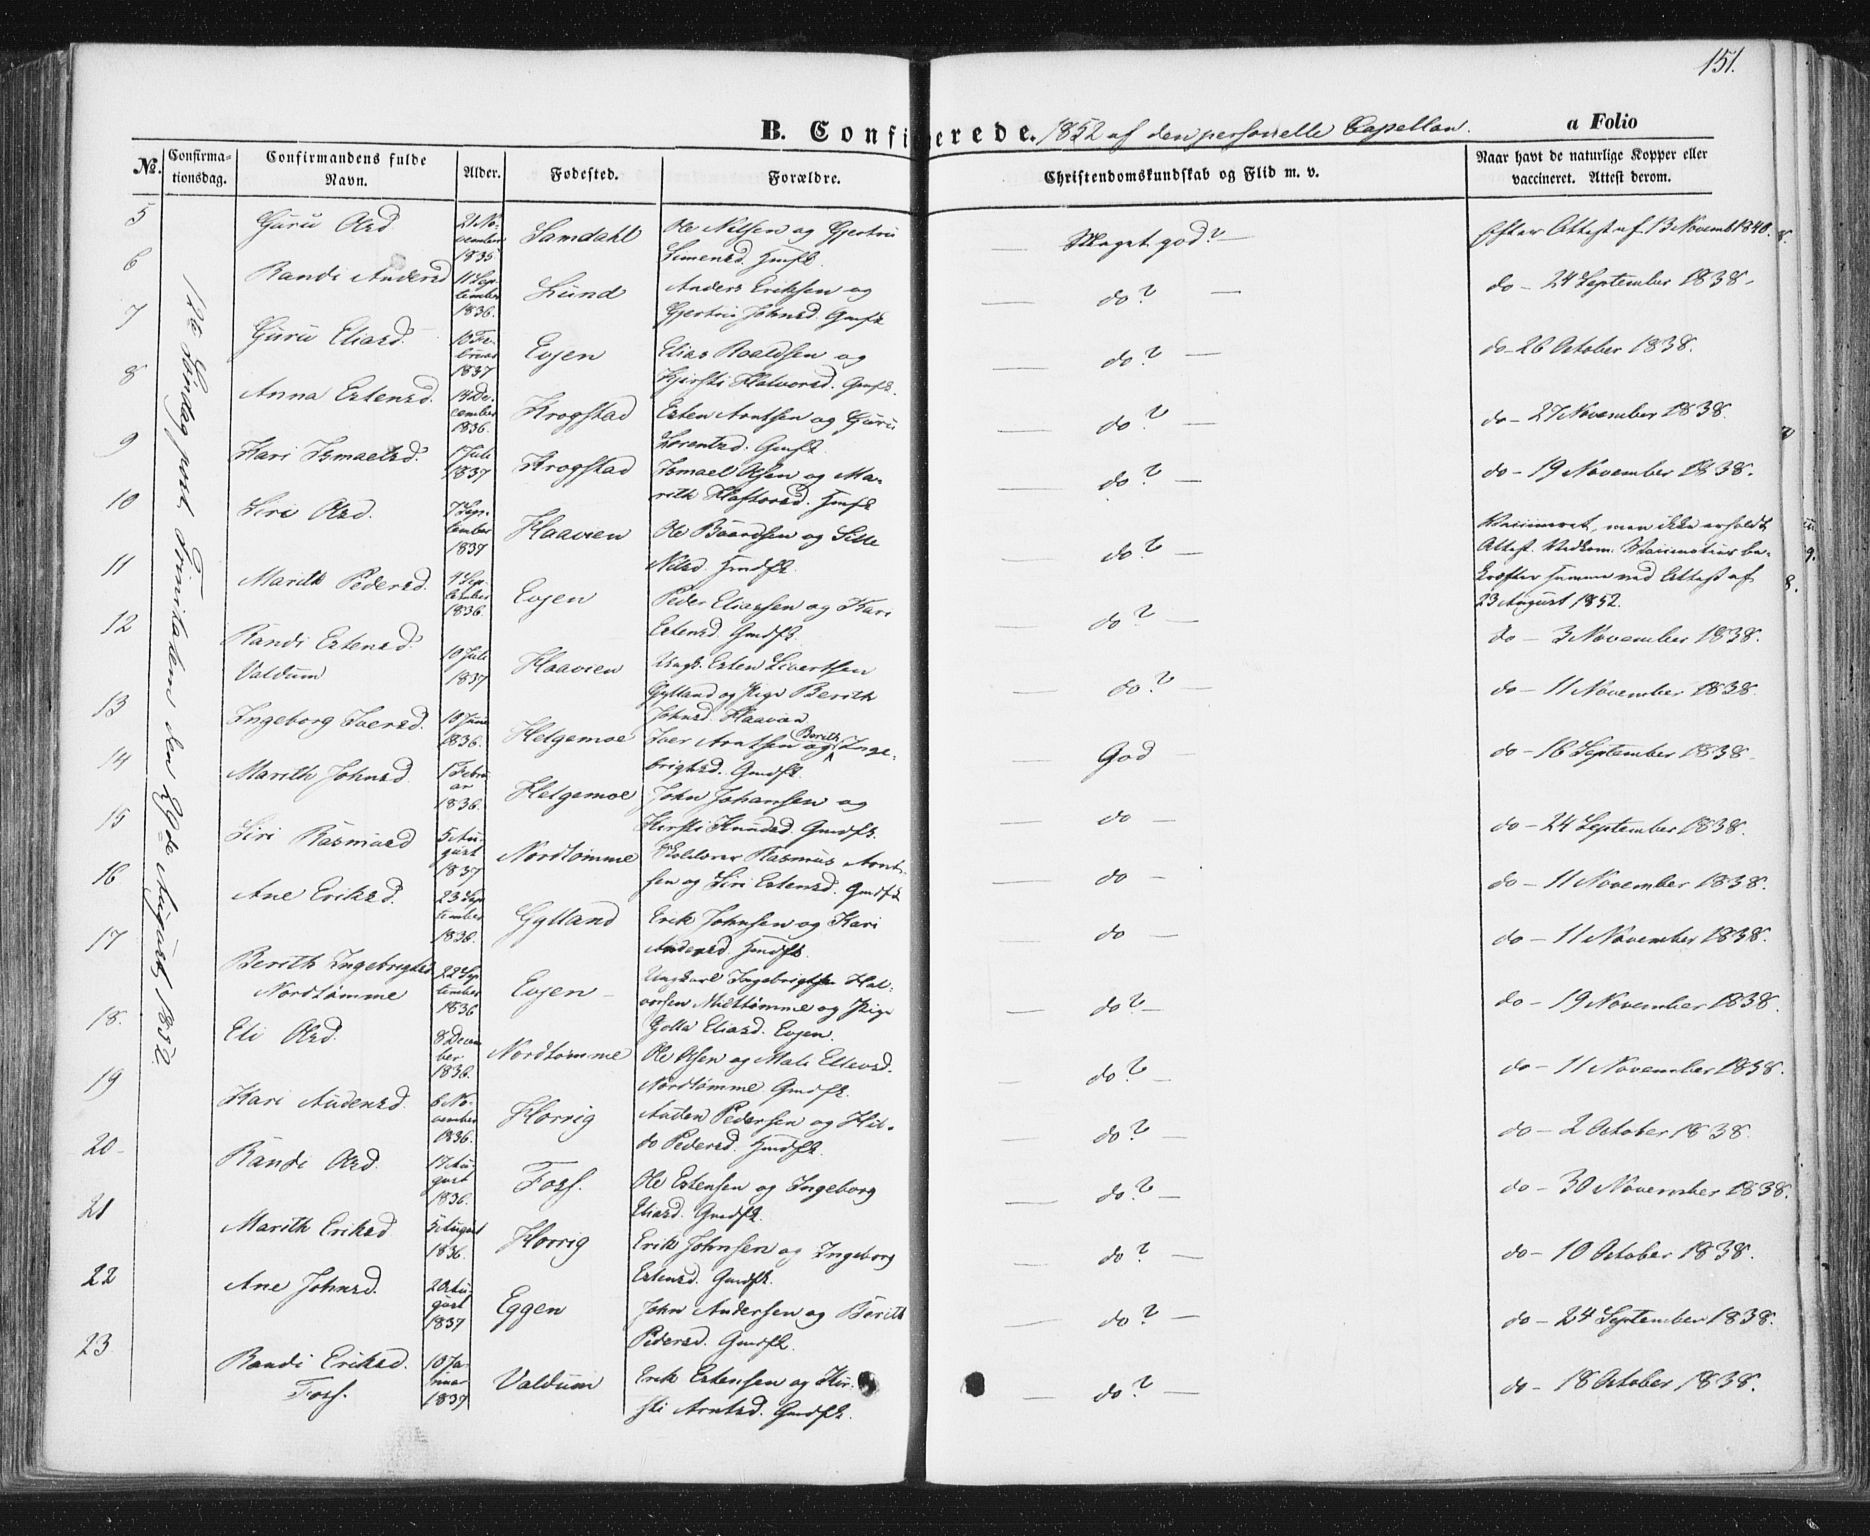 151.
B. Confirmerede. 1852 af den personelle Capellan. a Folio
No. Confirmationsdag. Confirmandens fulde Navn. Alder. Fødested. Forældre. Christendomskundskab og Flid m. v. Naar havt de naturlige Kopper eller vaccineret. Attest derom.
12te Søndag post Trinitatem den 29de August 1852.
5 Guru Olsd. 21 November 1835 Samdahl Ole Nilsen og Gjertru Simensd. Gmfk. Meget god? Efter Attest af 13 Novemb 1840.
6 Randi Andersd 11 September 1836. Lund Anders Eriksen og Gjertru Johnsd. Gmfk do? do - 24 September 1838.
7 Guru Eliasd. 10 Februar 1837 Evjen Elias Roaldsen og Kjersti Halvorsd. Gmfk. do? do - 26 October 1838.
8 Anna Estensd. 14 December 1836. Krogstad Esten Arntsen og Guru Lorentsd. Gmfk. do? do - 27 November 1838.
9 Kari Ismaelsd. 17 Juli 1837 Krogstad Ismael Olsen og Marith Hafstorsd. Hmfk do? do - 19 November 1838.
10 Siri Olsd. 7 September 1837 Haavien Ole Baardsen og Sille Nilsd. Hmdfk. do? Vaccineret, men ikke erholdt Attest. Vedkom. Vaccinateur bekræfter samme ved Attest af 23 August 1852.
11 Marith Pedersd. 4 September 1836. Evjen Peder Eliassen og Kari Estensd. Gmdfk. do? do - 3 November 1838.
12 Randi Estensd. Valdum 19 Juli 1837 Haavien Ungk. Esten Sivertsen Gylland og Pige Berith Johnsd. Haavien do? do - 11 November 1838.
13 Ingeborg Iversd. 19 Juni 1836. Helgemoe Iver Arntsen og Berith Ingebrigtsd. Gmdfk. God do - 16 September 1838.
14 Marith Johnsd. 1 Februar 1836. Helgemoe John Johansen og Kirsti Knudsd. Gmdfk. do do - 24 September 1838.
15 Siri Rasmusd 5 August 1837 Nordtømme Skoleholder Rasmus Arntsen og Siri Estensd. Gmdfk do do - 11 November 1838.
16 Ane Eriksd. 23 September 1836. Gylland Erik Johnsen og Kari Andersd. Hmdfk. do do - 11 November 1838.
17 Berith Ingebrigtsd Nordtømme 22 September 1836 Evjen Ungkarl Ingebrigtsen Halvorsen Midttømme og Pige Golla Eliasd. Evjen. do? do - 19 November 1838.
18. Eli Olsd. 8 December 1836. Nordtømme Ole Olsen og Mali Ellevsd. Nordtømme Gmdfk. do? do - 11 November 1838.
19 Kari Audensd. 6 November 1836. Horrig Auden Pedersen og Hildo Pedersd. Hmdfk. do? do - 2 October 1838.
20 Randi Olsd. 17 August 1836. Foss. Ole Estensen og Ingeborg Eliasd. Gmdfk. do? do - 30 November 1838.
21 Marith Eriksd 5 August 1836. Horrig Erik Johnsen og Ingeborg Estensd. Gmdfk. do? do - 10 October 1838.
22 Ane Johnsd. 20 August 1837 Eggen John Andersen og Berith Pedersd. Gmdfk. do? do - 24 September 1838.
23. Randi Eriksd. Foss. 10 Januar 1837 Valdum Erik Estensen og Kirsti Arntsd. Gmdfk. do? do - 18 October 1838.